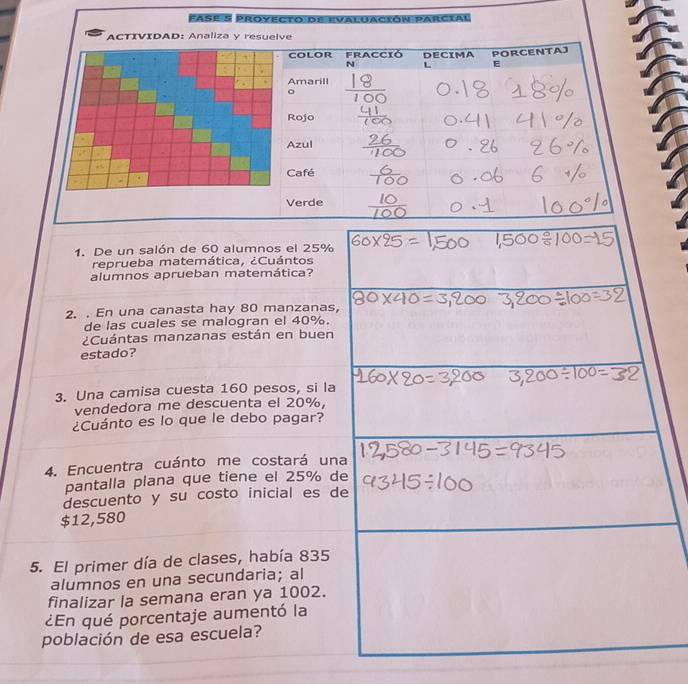 FASE 5 PROYECTO DE EVALUACIÓN PARCIAL
ACTIVIDAD: Analiza y resuelve
COLOR FRACCIÓN DECIMAL PORCENTAJE
Amarillo 18/100 0.18 18%
Rojo 41/100 0.41 41%
Azul 26/100 0.26 26%
Café 6/100 0.06 6%
Verde 10/100 0.1 100%
1. De un salón de 60 alumnos el 25%
reprueba matemática, ¿Cuántos
alumnos aprueban matemática?
60x25=1,500 1,500÷100=15
2. . En una canasta hay 80 manzanas,
de las cuales se malogran el 40%.
¿Cuántas manzanas están en buen
estado?
80x40=3,200 3,200÷100=32
3. Una camisa cuesta 160 pesos, si la
vendedora me descuenta el 20%,
¿Cuánto es lo que le debo pagar?
160x20=3,200 3,200÷100=32
4. Encuentra cuánto me costará una
pantalla plana que tiene el 25% de
descuento y su costo inicial es de
$12,580
12,580-3145=9345
9345÷100
5. El primer día de clases, había 835
alumnos en una secundaria; al
finalizar la semana eran ya 1002.
¿En qué porcentaje aumentó la
población de esa escuela?